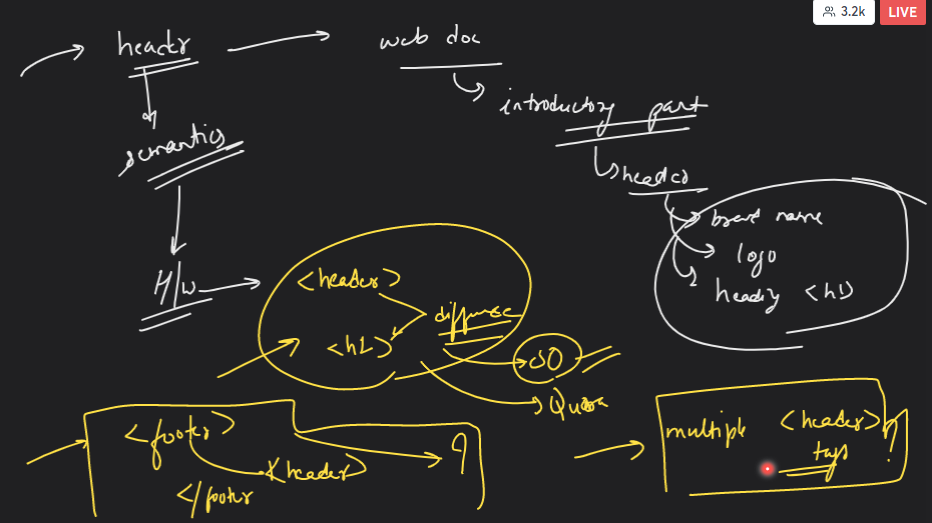 3.2k LIVE
header
web doc
introductory part
semantics
header
brand name
logo
heading <h1>
H/W
<header>
<h1>
difference
SO
Quora
<footer>
<header>
</footer
?
multiple <header>
tags ?